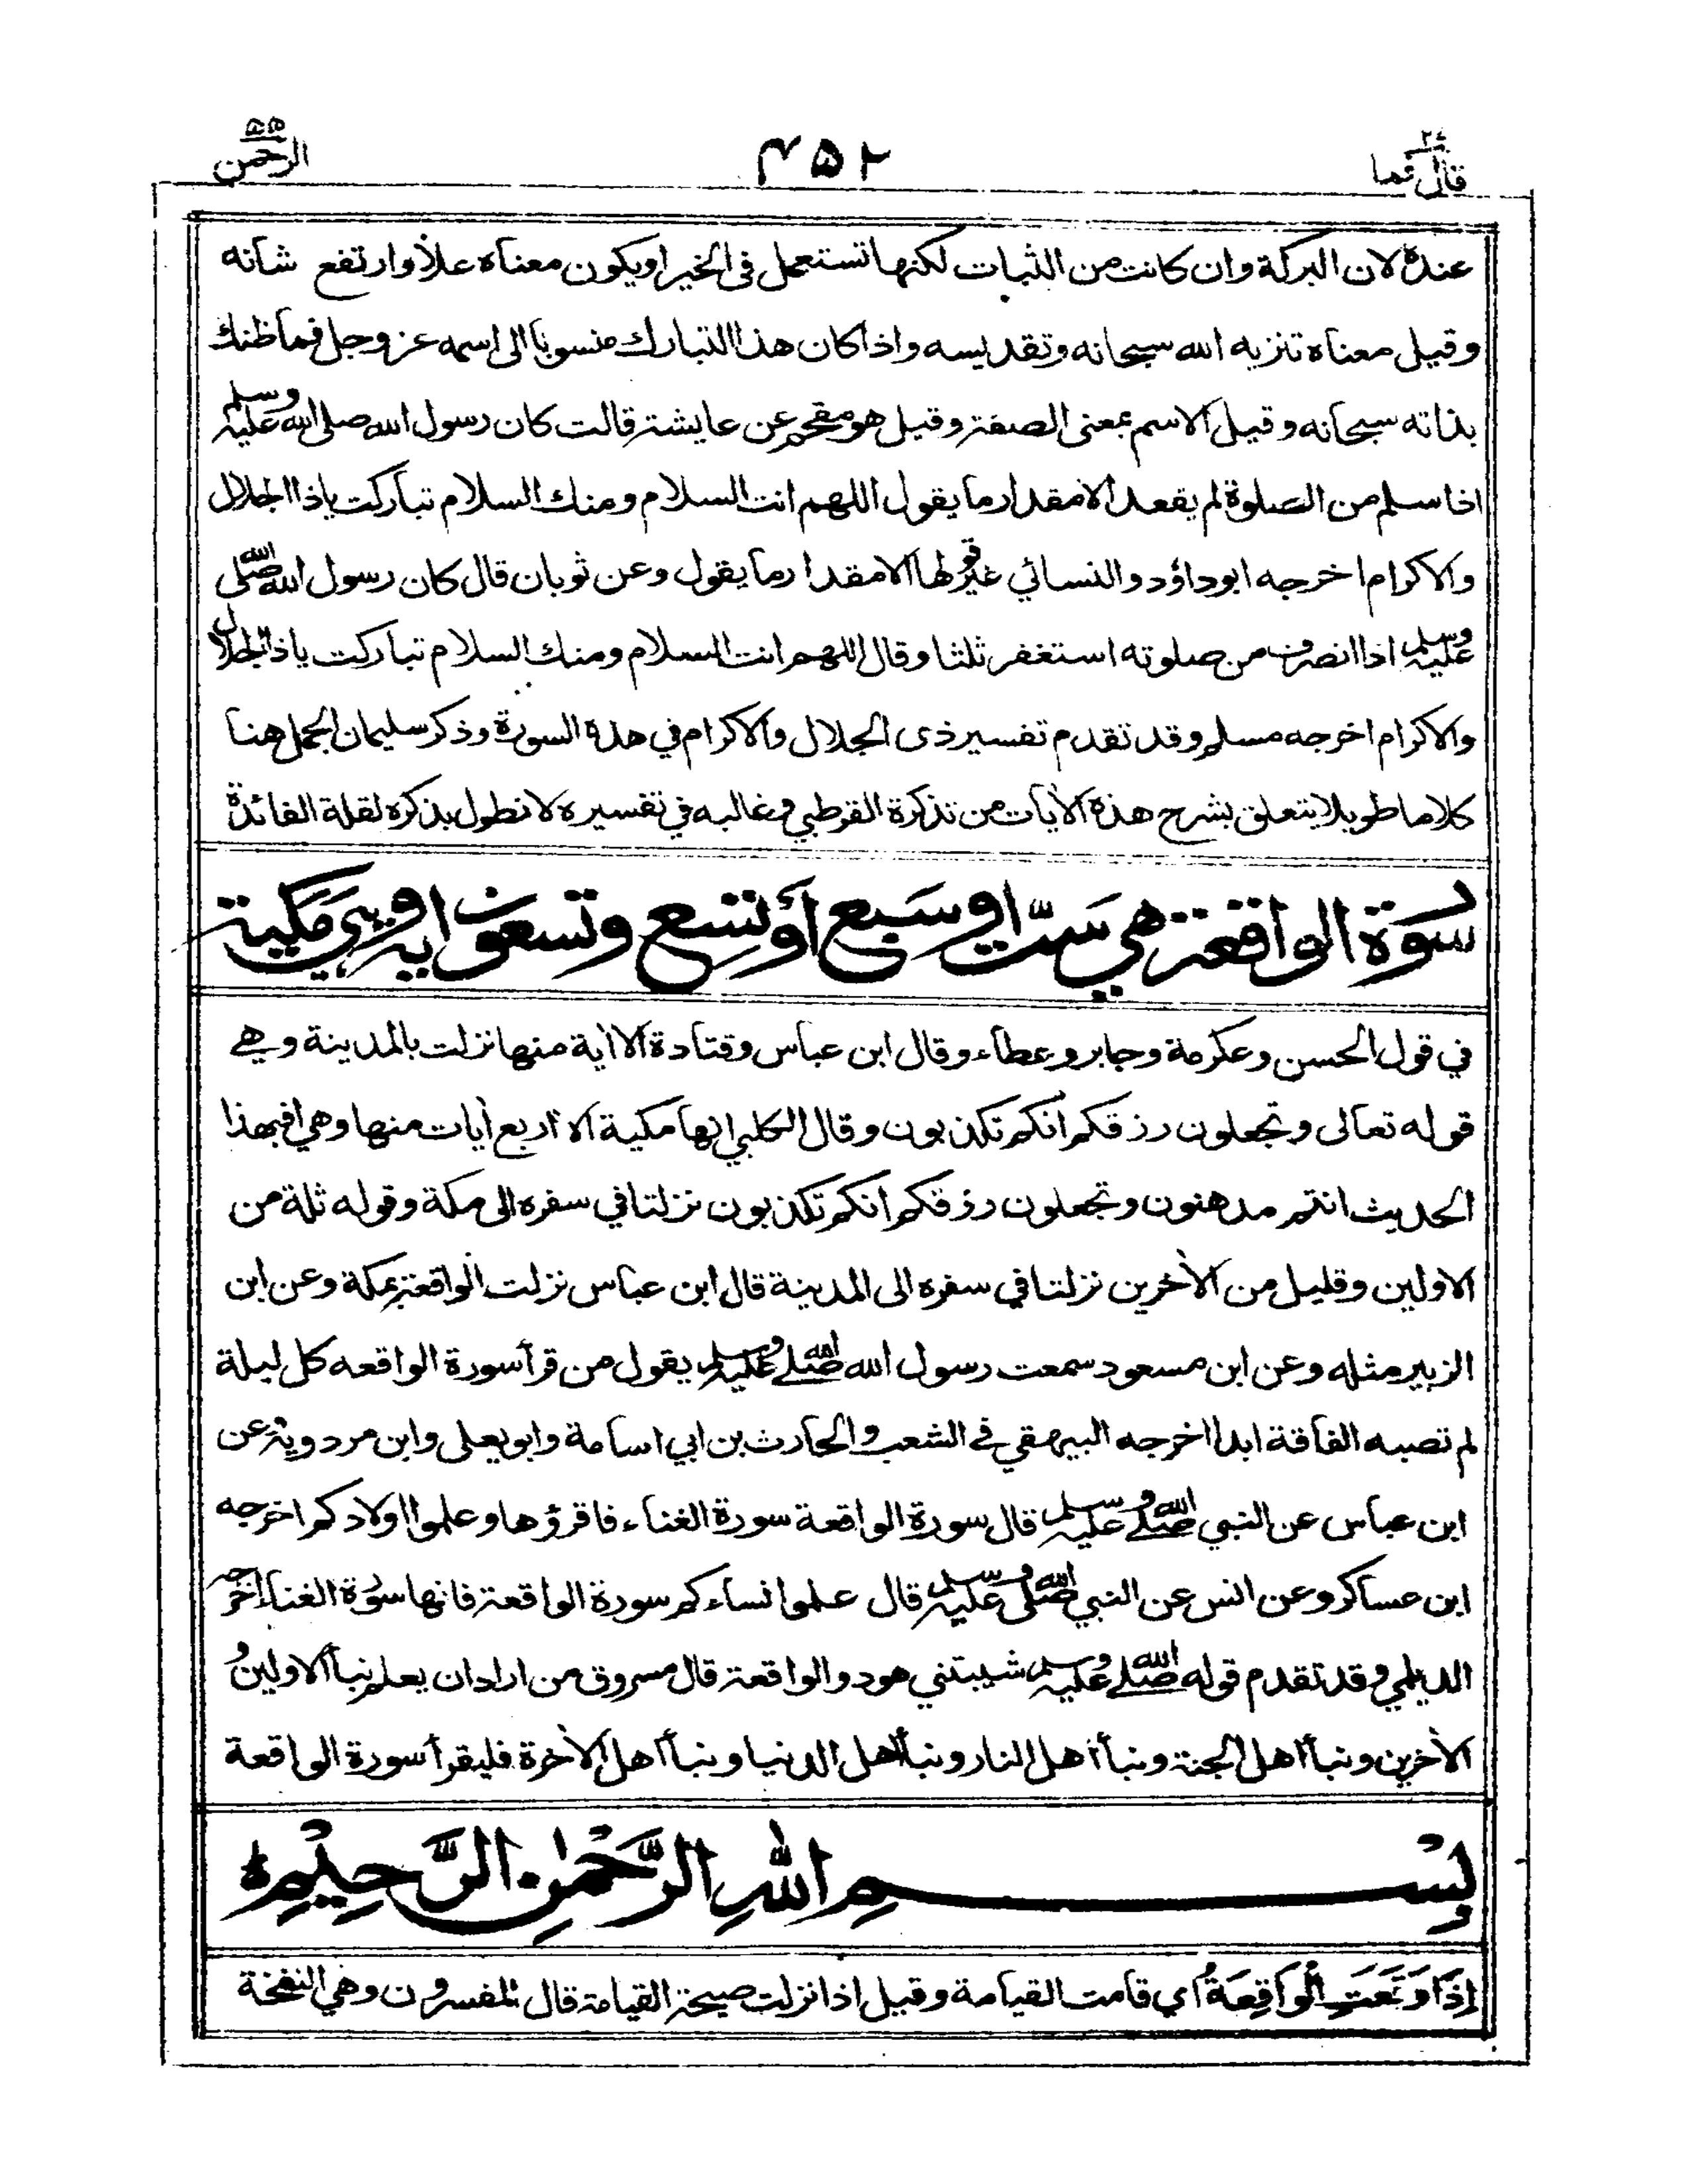 قال فما ٢٧
٤٥٢
الرحمن ٥٥
عنده لان البركة وان كانت من الثبات لكنها تستعمل في الخير او يكون معناه علا وارتفع شانه
وقيل معناه تنزيه الله سبحانه وتقديسه واذا كان هذا التبارك منسوبا الى اسمه عز وجل فما ظنك
بذاته سبحانه وقيل الاسم بمعنى الصفة وقيل هو مقحم عن عايشة قالت كان رسول الله صلى الله عليه وسلم
اذا سلم من الصلوة لم يقعد الا مقدار ما يقول اللهم انت السلام ومنك السلام تباركت ياذا الجلال
والاكرام اخرجه ابوداؤد والنسائي غير قولها الا مقدار ما يقول وعن ثوبان قال كان رسول الله صلى الله
عليه وسلم اذا انصرف من صلوته استغفر ثلثا وقال اللهم انت السلام ومنك السلام تباركت ياذا الجلال
والاكرام اخرجه مسلم وقد تقدم تفسير ذى الجلال والاكرام في هذه السورة وذكر سليمان الجمل هنا
كلاما طويلا يتعلق بشرح هذه الأيات من تذكرة القرطبي وغالبه في تفسيره لا نطول بذكره لقلة الفائدة
سورة الواقعة هي ست او سبع أو تسع وتسعون اية وهي مكية
في قول الحسن وعكرمة وجابر وعطاء وقال ابن عباس وقتادة الا أية منها نزلت بالمدينة وهي
قوله تعالى وتجعلون رزقكم أنكم تكذبون وقال الكلبي انها مكية الا اربع أيات منها وهي افبهذا
الحديث انتم مدهنون وتجعلون رزقكم انكم تكذبون نزلتا في سفره الى مكة وقوله ثلة من
الاولين وقليل من الأخرين نزلتا في سفره الى المدينة قال ابن عباس نزلت الواقعة بمكة وعن ابن
الزبير مثله وعن ابن مسعود سمعت رسول الله صلى الله عليه وسلم يقول من قرأ سورة الواقعه كل ليلة
لم تصبه الفاقة ابدا اخرجه البيهقي في الشعب والحارث بن ابي اسامة وابو يعلى وابن مردوية عن
ابن عباس عن النبي صلى الله عليه وسلم قال سورة الواقعة سورة الغناء فاقرؤها وعلموا اولادكم اخرجه
ابن عساكر وعن انس عن النبي صلى الله عليه وسلم قال علموا نساءكم سورة الواقعة فانها سورة الغناء اخرجه
الديلمي وقد تقدم قوله صلى الله عليه وسلم شيبتني هود والواقعة قال مسروق من اراد ان يعلم نبأ الاولين و
الأخرين ونبأ اهل الجنة ونبأ اهل النار ونبأ اهل الدنيا ونبأ اهل الأخرة فليقرأ سورة الواقعة
بِسْمِ اللهِ الرَّحْمٰنِ الرَّحِيْمِ ۝
إِذَا وَقَعَتِ الْوَاقِعَةُ اي قامت القيامة وقيل اذا نزلت صيحة القيامة قال المفسرون وهي النفخة